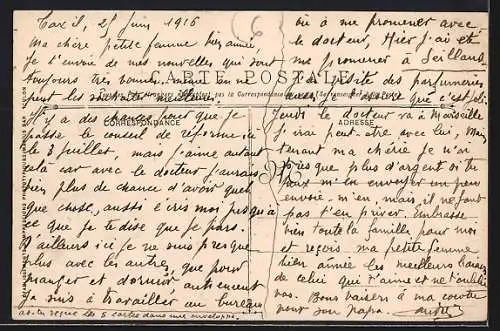 Taxil, 25 juin 1916
Ma chère petite femme bien aimée,
je t'envoie de mes nouvelles qui sont
toujours très bonnes, même on ne
peut les souhaiter meilleures.
Il y a des chances pour que je
passe le conseil de réforme ici
le 3 juillet, mais j'aime autant
cela car avec le docteur j'aurais
bien plus de chance d'avoir quel
que chose, aussi écris moi jusqu'à
ce que je te dise que je pars.
D'ailleurs ici je ne suis presque
plus avec les autres, que pour
manger et dormir, autrement
je suis à travailler au bureau
as-tu reçue les 5 cartes dans une enveloppe.
CARTE POSTALE
CORRESPONDANCE
ADRESSE
à me promener avec
le docteur, Hier j'ai été
me promener à Seillans
visite des parfumeries
je t'assure que c'est joli.
Jeudi le docteur va à Marseille
j'irai peut-être avec lui, Main
tenant ma chérie je n'ai
presque plus d'argent si tu
peux m'en envoyer un peu
envoie-m'en, mais il ne faut
pas t'en priver. Embrasse
bien toute la famille pour moi
et reçois ma petite femme
bien aimée les meilleurs baisers
de celui qui t'aime et ne t'oublie
pas. Bons baisers à ma
pour son papa. André